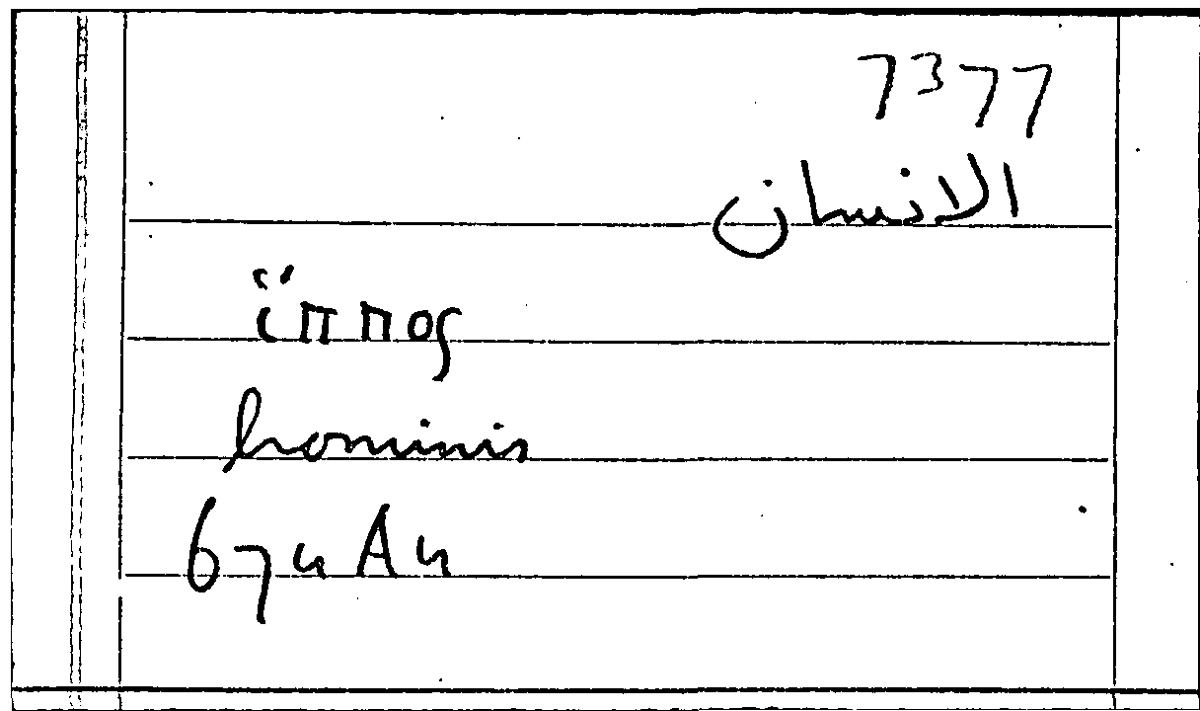 7377
الانسان
ἵππος
hominis
67u Au